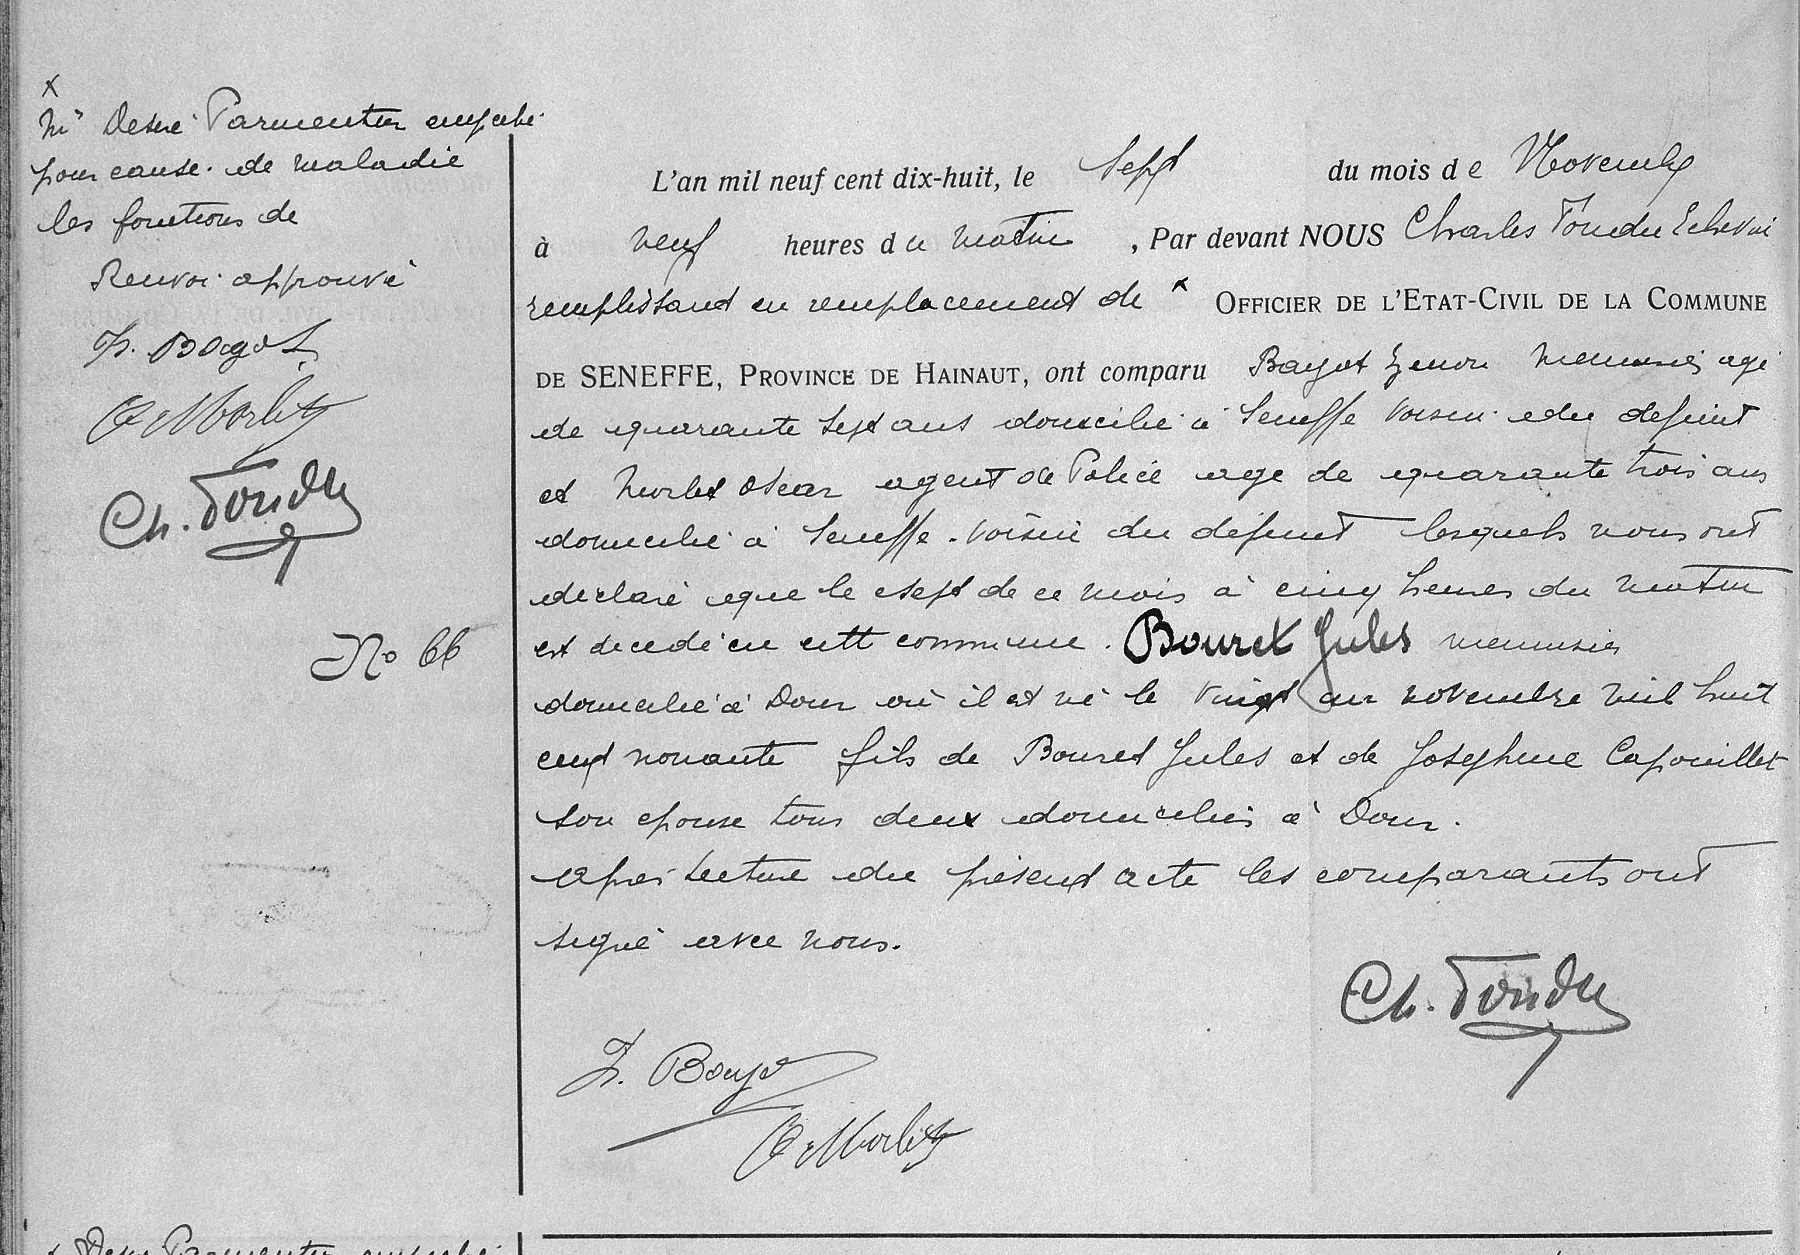 x
Mr Desiré Parmentier empeché
pour cause de maladie
les fonctions de
Renvoi approuvé
Z. Bayot
O Morlet
Ch. Tondu
No 66
L'an mil neuf cent dix-huit, le sept du mois de Novembre
à neuf heures du matin , Par devant NOUS Charles Tondu Echevin
remplissant en remplacement de x OFFICIER DE L'ETAT-CIVIL DE LA COMMUNE
DE SENEFFE, PROVINCE DE HAINAUT, ont comparu Bayot Zenon menuisier agé
de quarante sept ans domicilié à Seneffe voisin du defunt
et Morlet Oscar agent de Police agé de quarante trois ans
domicilié à Seneffe voisin du défunt lesquels nous ont
declaré que le sept de ce mois à cinq heures du matin
est decedé en cette commune. Bouret Jules menuisier
domicilié à Dour où il est né le vingt un novembre mil huit
cent nonante fils de Bouret Jules et de Josephine Capouillet
son epouse tous deux domiciliés à Dour.
Après lecture du présent acte les comparants ont
signé avec nous.
Ch. Tondu
Z. Bayot
O Morlet
x Desiré Parmentier empeché